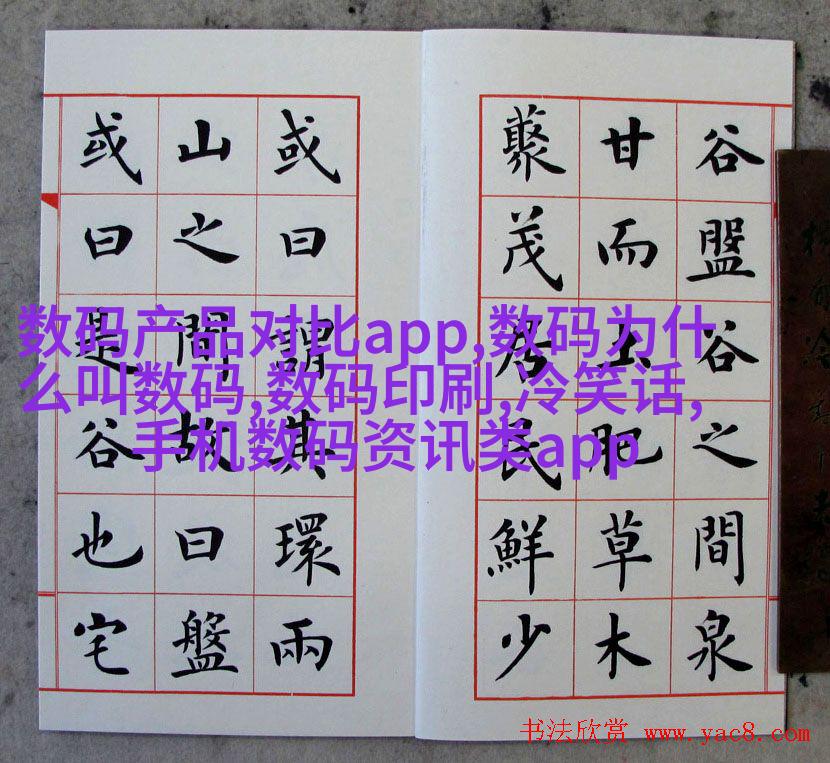 谷盤谷之間泉
甘而土肥草木
藂茂居民鮮少
或曰謂其環兩
山之間故曰盤
或曰是谷也宅
数码产品对比app,数码为什
么叫数码,数码印刷,冷笑话,
手机数码资讯类app
书法欣赏 www.yac8.com